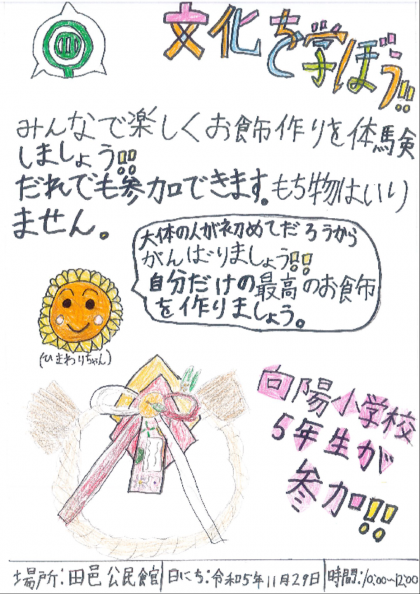 文化を学ぼう!!
みんなで楽しくお飾作りを体験
しましょう!!
だれでも参加できます。もち物はいり
ません。
大体の人が初めてだろうから
がんばりましょう!!
自分だけの最高のお食布
を作りましょう。
(ひまわりちゃん)
向陽小学校
5年生が
参加!!
場所:田邑公民館 日にち:令和5年11月29日 時間:10:00~12:00